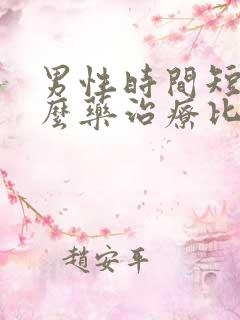 男性時間短
麼藥治療比
趙安平